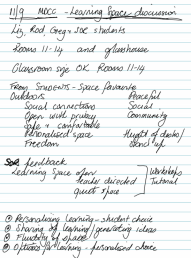 11/9 MDCC - Learning Space discussion
Liz, Rod, Greg + JDC students
Rooms 11-14 and glasshouse
Classroom size OK Rooms 11-14
From STUDENTS - Space favourite
Outdoors Peaceful
Social connections Social
Open with privacy Community
Safe + comfortable
Personalised space Height of desks/
Freedom stand up
feedback
Learning Space open Workshops
teacher directed Tutorial
quiet space
Personalising learning - student choice
Sharing of learning/generating ideas
Fluidity of space
Options for learning - personalised choice